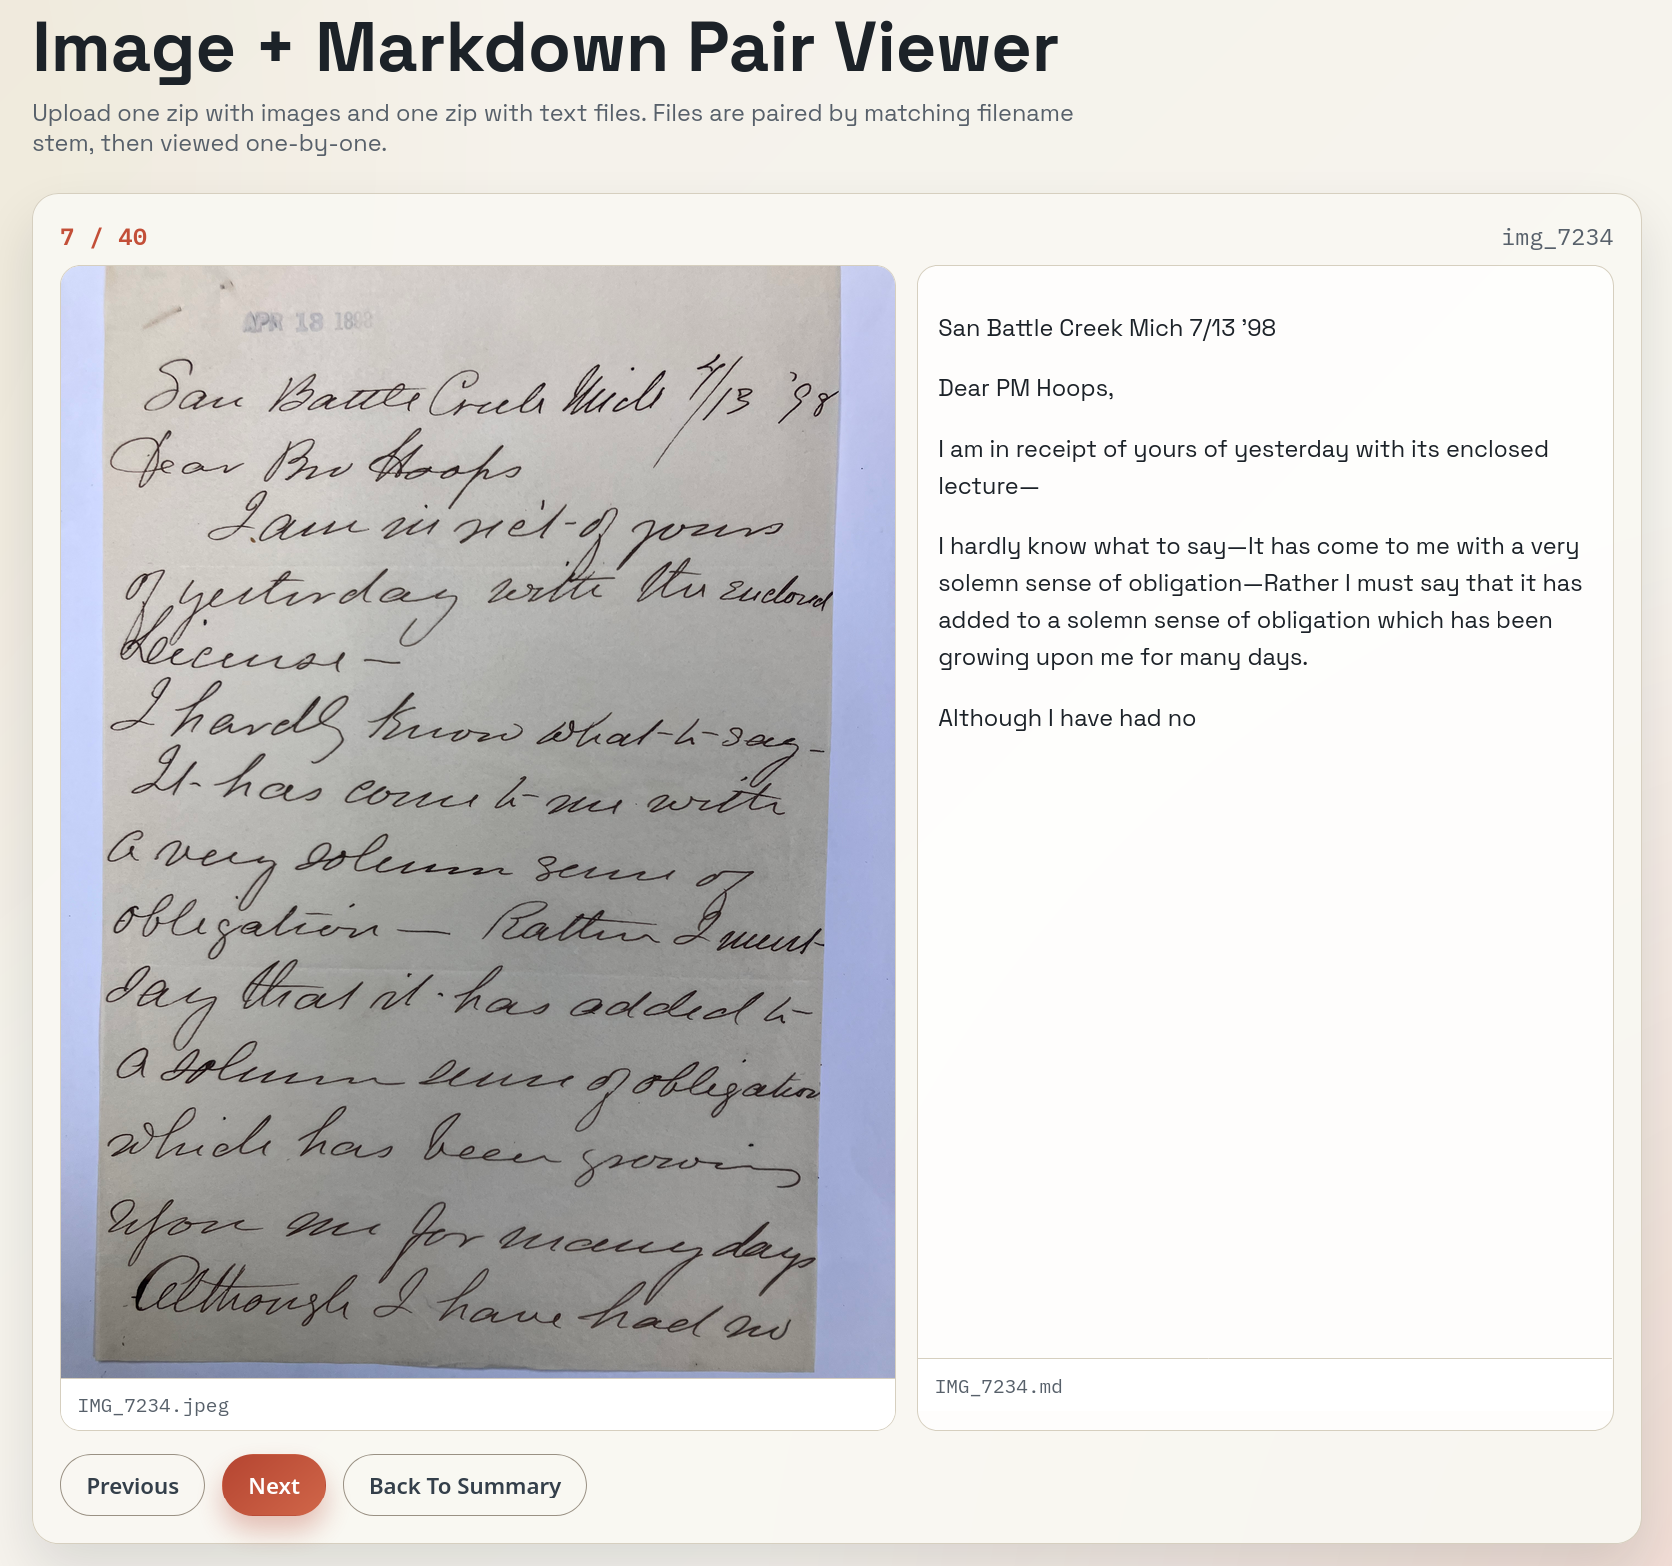 Image + Markdown Pair Viewer
Upload one zip with images and one zip with text files. Files are paired by matching filename
stem, then viewed one-by-one.
7 / 40
img_7234
APR 13 1898
San Battle Creek Mich 4/13 '98
Dear Bro Hoops
I am in rec't of yours
of yesterday with the enclosed
License —
I hardly know what to say –
It has come to me with
a very solemn sense of
obligation — Rather I must
say that it has added to
a solemn sense of obligation
which has been growing
upon me for many days
Although I have had no
IMG_7234.jpeg
San Battle Creek Mich 7/13 ’98
Dear PM Hoops,
I am in receipt of yours of yesterday with its enclosed
lecture—
I hardly know what to say—It has come to me with a very
solemn sense of obligation—Rather I must say that it has
added to a solemn sense of obligation which has been
growing upon me for many days.
Although I have had no
IMG_7234.md
Previous
Next
Back To Summary